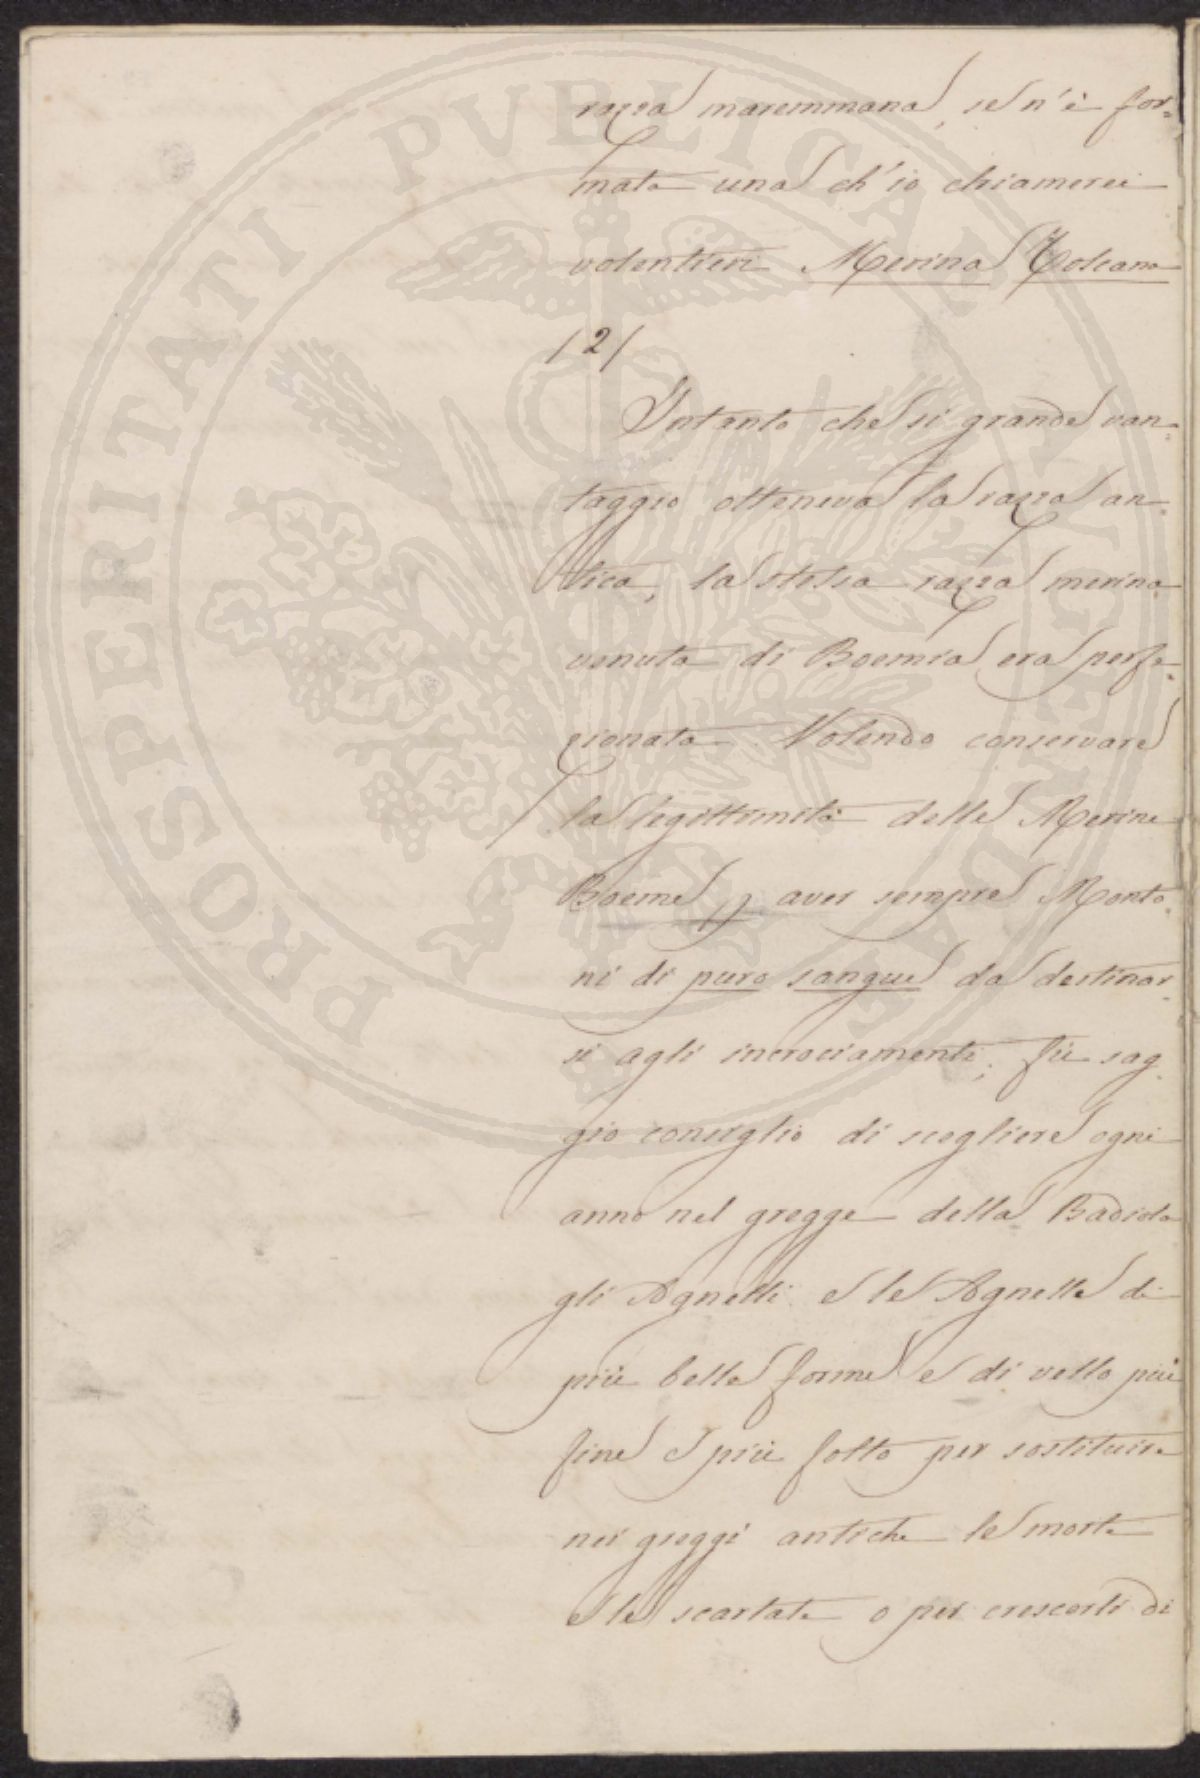 razza maremmana, se n'è for=
mata una ch'io chiamerei
volentieri Merina Toscana
/2/
Intanto che sì grande van=
taggio otteneva la razza an=
tica, la stessa razza merina
venuta di Boemia era perfe=
zionata. Volendo conservare
/ la legittimità delle Merine
Boeme, aver sempre Monto=
ni di puro sangue da destinar=
si agli incrociamenti; fù sag=
gio consiglio di scegliere ogni
anno nel gregge della Badiola
gli Agnelli e le Agnelle di
più belle forme e di vello più
fine e più folto per sostituire
nei greggi antiche le morte
e le scartate o per crescerli di
PROSPERITATI PVBLICAE AVGENDAE